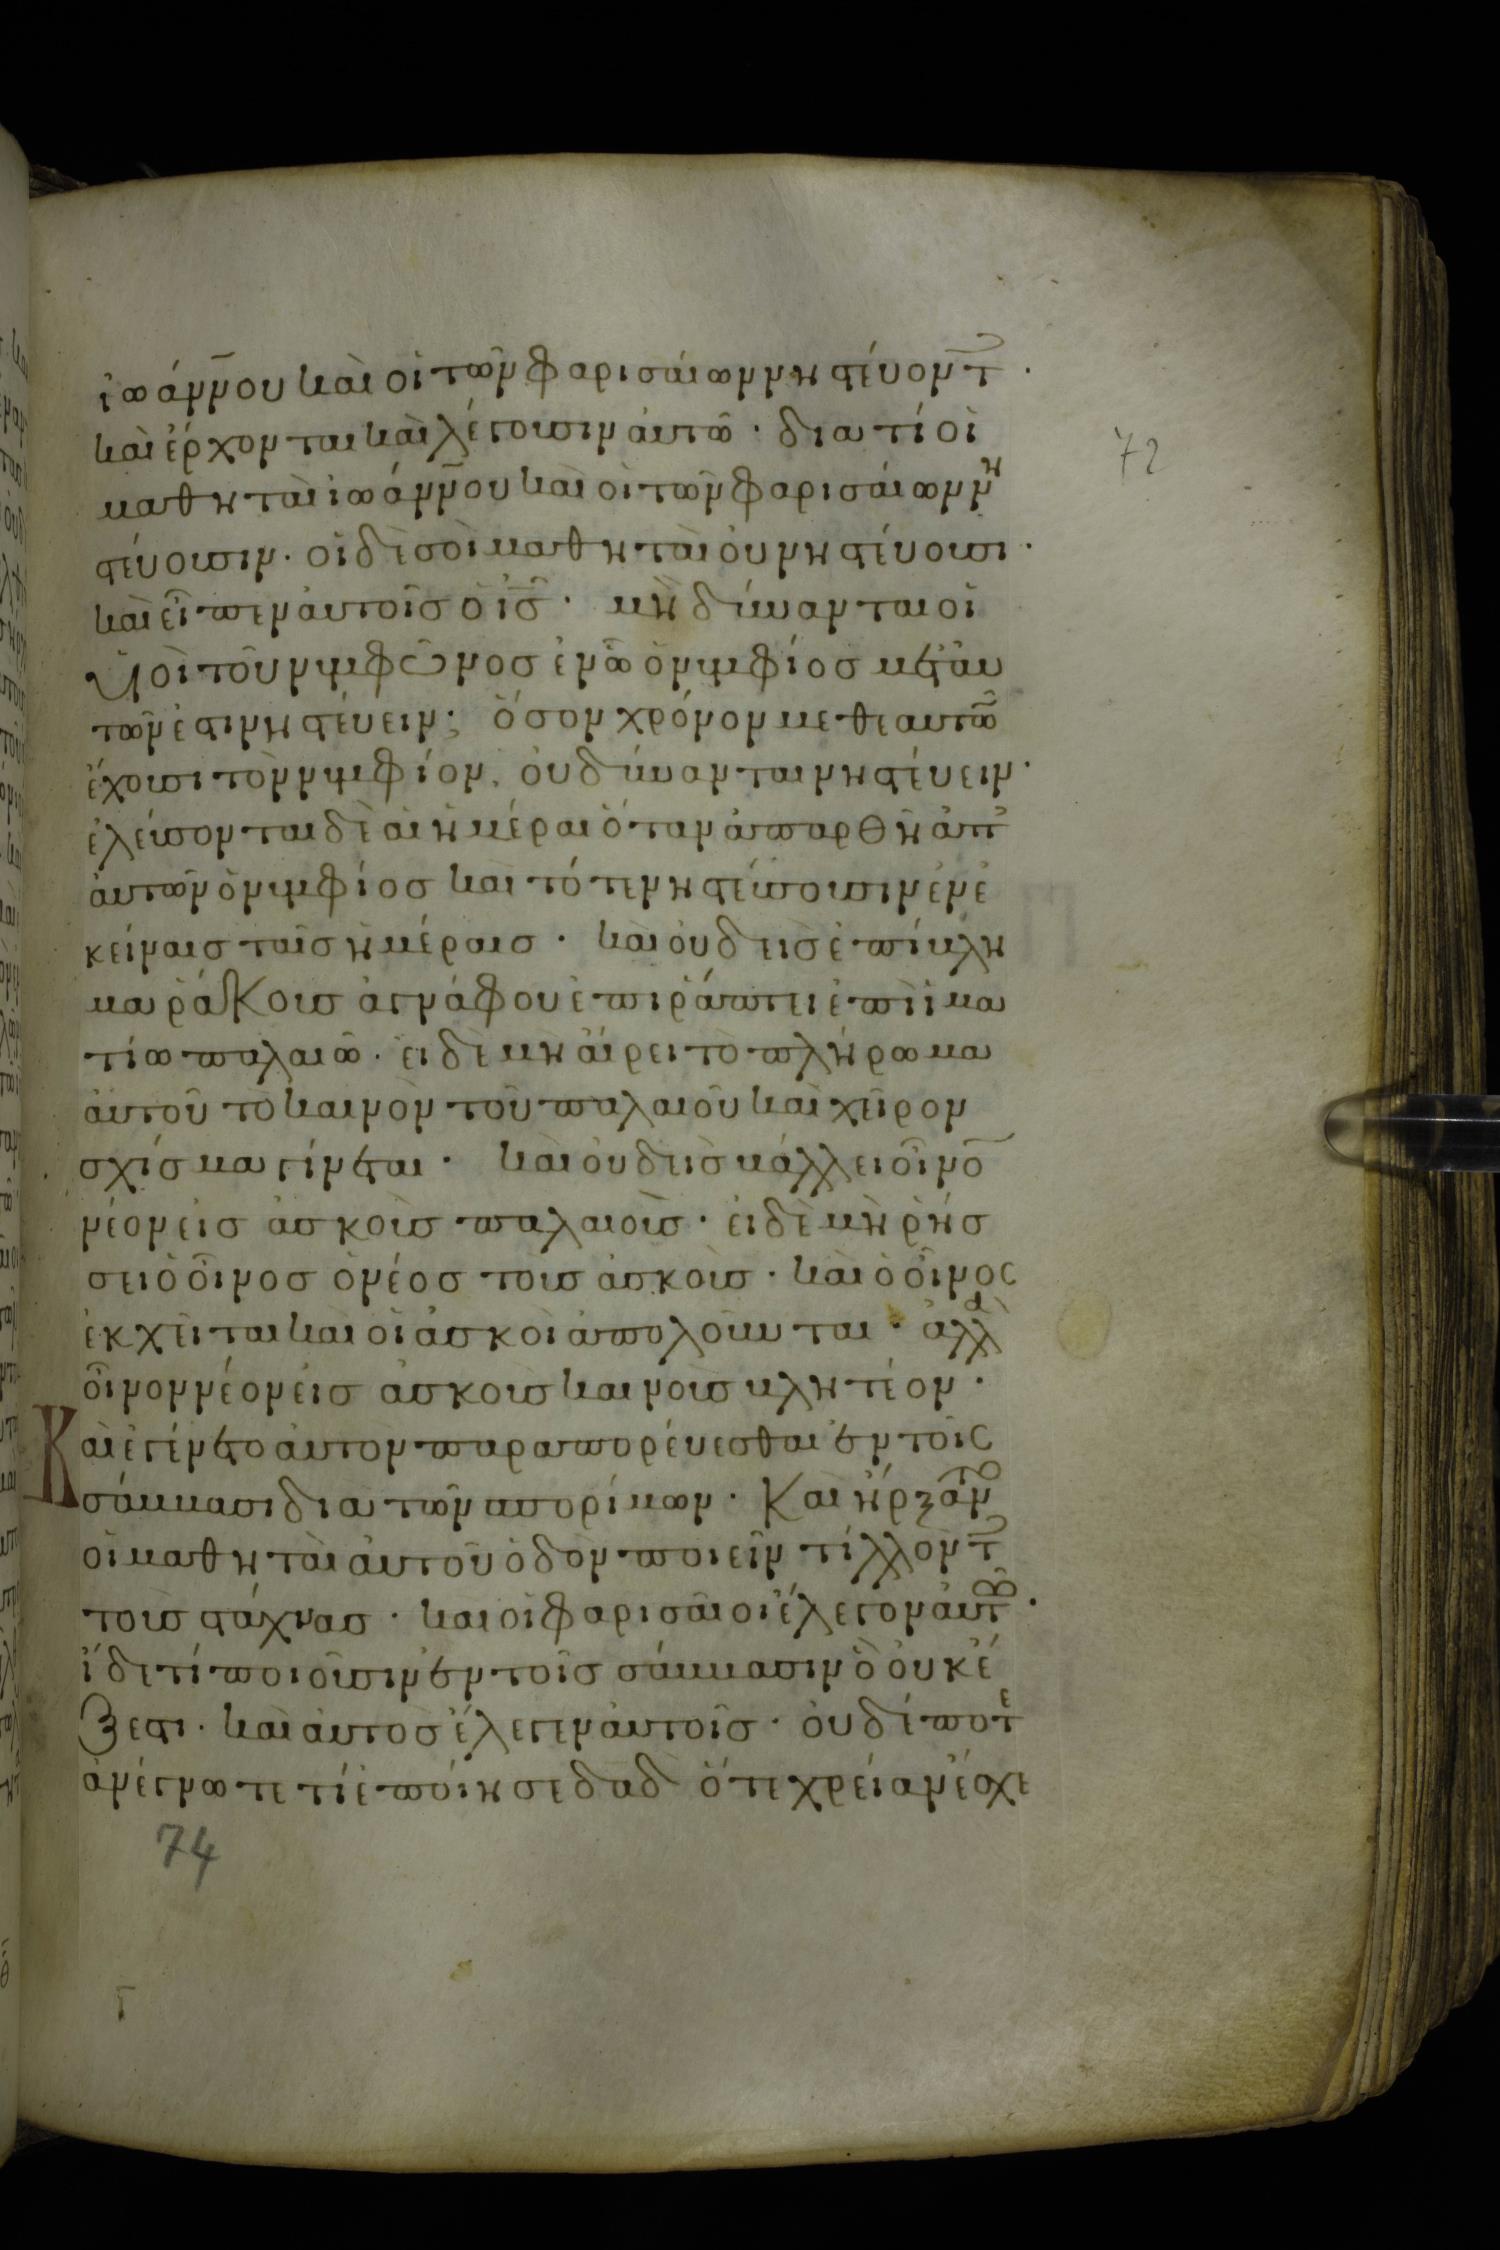 ἰωάννου καὶ οἱ τῶν φαρισαίων νηστεύοντ
72
καὶ ἔρχονται καὶ λέγουσιν αὐτῶ · δια τί οἱ
μαθηταὶ ἰωάννου καὶ οἱ τῶν φαρισαίων νη
στεύουσιν · οἱ δὲ σοὶ μαθηταὶ οὐ νηστεύουσι ·
καὶ εἶπεν αὐτοῖς ὁ ἰς · μὴ δύνανται οἱ
υἱοὶ τοῦ νυμφῶνος ἐν ὧ ὁ νυμφίος μετ' αυ
τῶν ἐστι νηστεύειν; ὅσον χρόνον μεθ εαυτῶν
ἔχουσι τὸν νυμφίον, οὐ δύνανται νηστεύειν ·
ἐλεύσονται δὲ αἱ ἡμέραι ὅταν ἀπαρθῆ ἀπ'
αὐτῶν ὁ νυμφίος καὶ τότε νηστεύσουσιν ἐν ἐ
κείναις ταῖς ἡμέραις · καὶ οὐδεὶς ἐπίβλη
μα ῥάκους ἀγνάφου ἐπιῤάπτει ἐπὶ ἱμα
τίω παλαιῶ · εἰ δὲ μὴ αἴρει τὸ πλήρωμα
αὐτοῦ τὸ καινὸν τοῦ παλαιοῦ καὶ χεῖρον
σχίσμα γίνεται · καὶ οὐδεὶς βάλλει οἶνο
νέον εἰς ἀσκοὺς παλαιοὺς · εἰ δὲ μὴ ῥήσ
σει ὁ οἶνος ὁ νέος τοὺς ἀσκοὺς · καὶ ὁ οἶνος
ἐκχεῖται καὶ οἱ ἀσκοὶ ἀπολοῦνται · ἀλλὰ
οἶνον νέον εἰς ἀσκοὺς καινοὺς βλητέον ·
Καὶ ἐγένετο αὐτον παραπορεύεσθαι ἐν τοῖς
σάββασι διὰ τῶν σπορίμων · Καὶ ἤρξαντο
οἱ μαθηταὶ αὐτοῦ ὁδὸν ποιεῖν τίλλοντ
τοὺς στάχυας · καὶ οἱ φαρισαῖοι ἔλεγον αὐτῶ ·
ἴδε τί ποιοῦσιν ἐν τοῖς σάββασιν ὃ οὐκ ἔ
ξεστι · καὶ αὐτὸς ἔλεγεν αὐτοῖς · οὐδέποτε
ἀνέγνωτε τί ἐποίησε δαδ ὅτε χρείαν ἔσχε
74
Γ